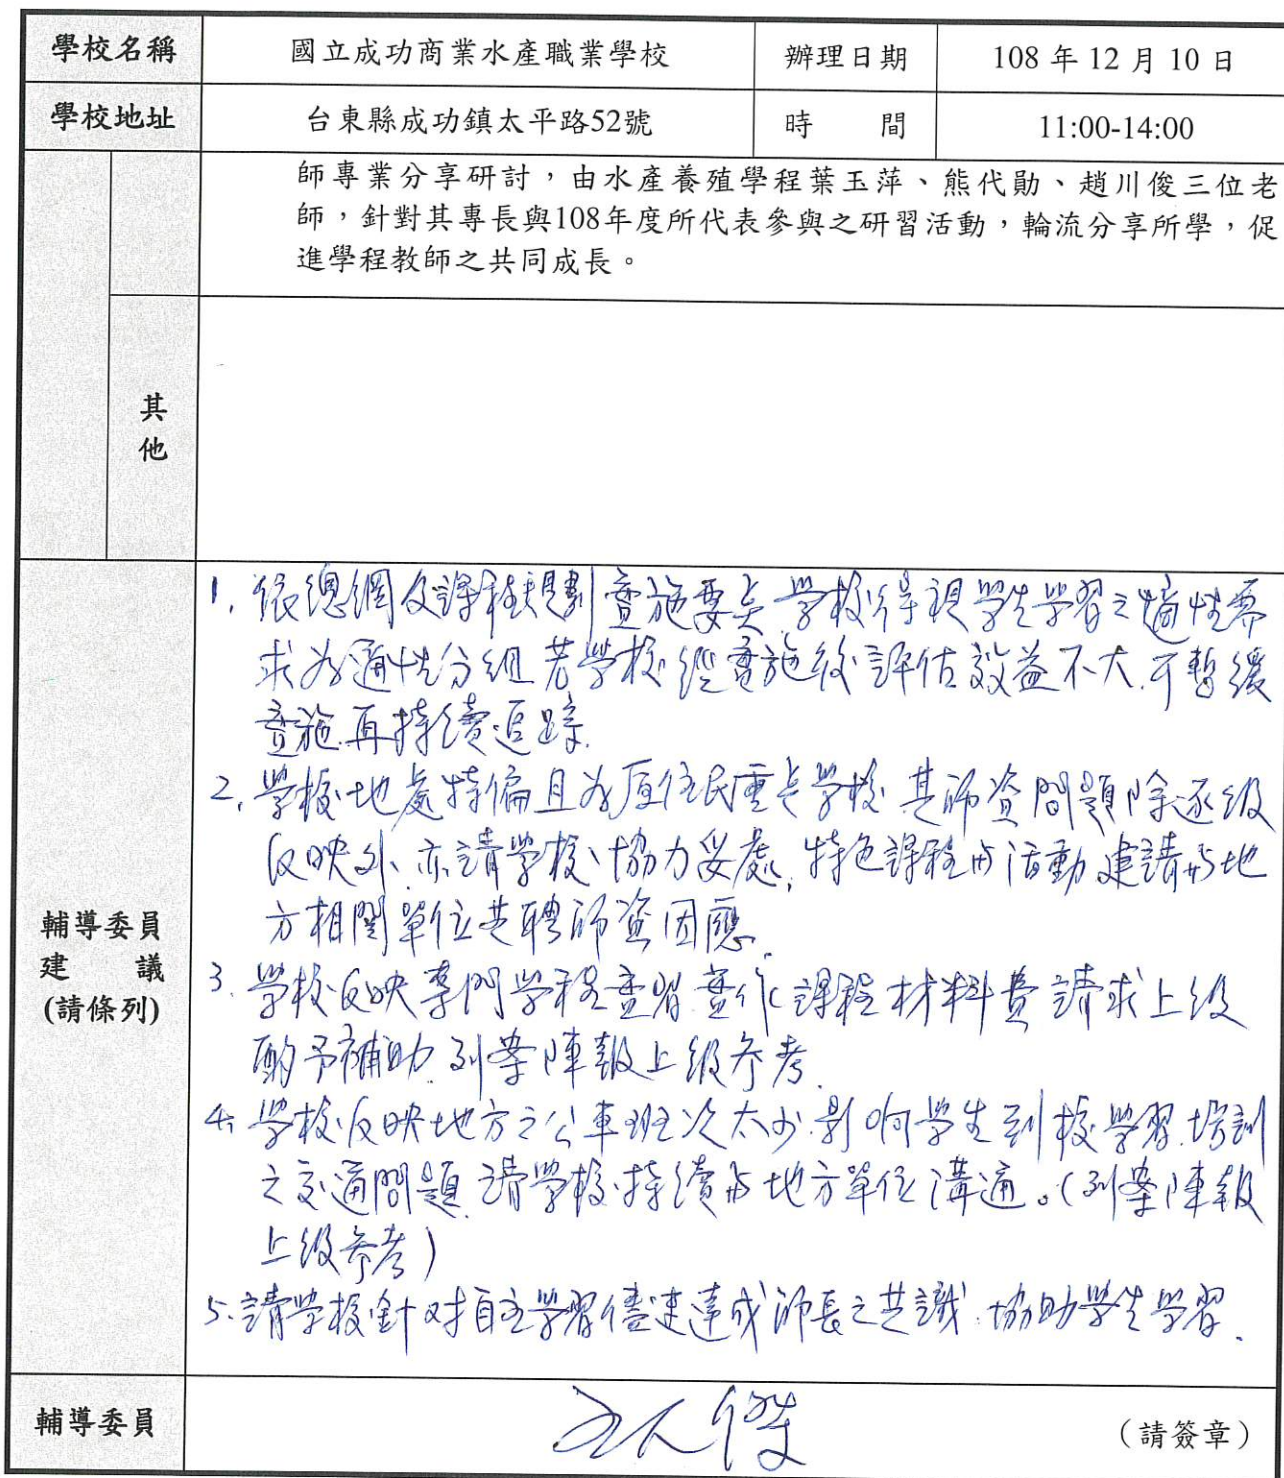 學校名稱 國立成功商業水產職業學校 辦理日期 108 年 12 月 10 日
學校地址 台東縣成功鎮太平路52號 時 間 11:00-14:00
師專業分享研討，由水產養殖學程葉玉萍、熊代勛、趙川俊三位老
師，針對其專長與108年度所代表參與之研習活動，輪流分享所學，促
進學程教師之共同成長。
其
他
輔導委員
建 議
(請條列)
1. 依總綱及課程規劃實施要点 學校得視學生學習之適性需
求為適性分組 若學校經實施後評估效益不大.可暫緩
實施.再持續追踪.
2. 學校地處特偏且為原住民重点學校.其師資問題除逐級
反映外.亦請學校協力妥處.特色課程与活動建請与地
方相関單位共聘師資因應.
3. 學校反映專門學程實習.實作課程材料費請求上级
酌予補助.列案陳報上級参考.
4. 學校反映地方之公車班次太少.影响學生到校學習.培訓
之交通問題.請學校持續与地方單位溝通。(列案陳報
上级参考)
5. 請学校針对自主學習儘速達成師長之共識.協助學生學習.
輔導委員 （請簽章）